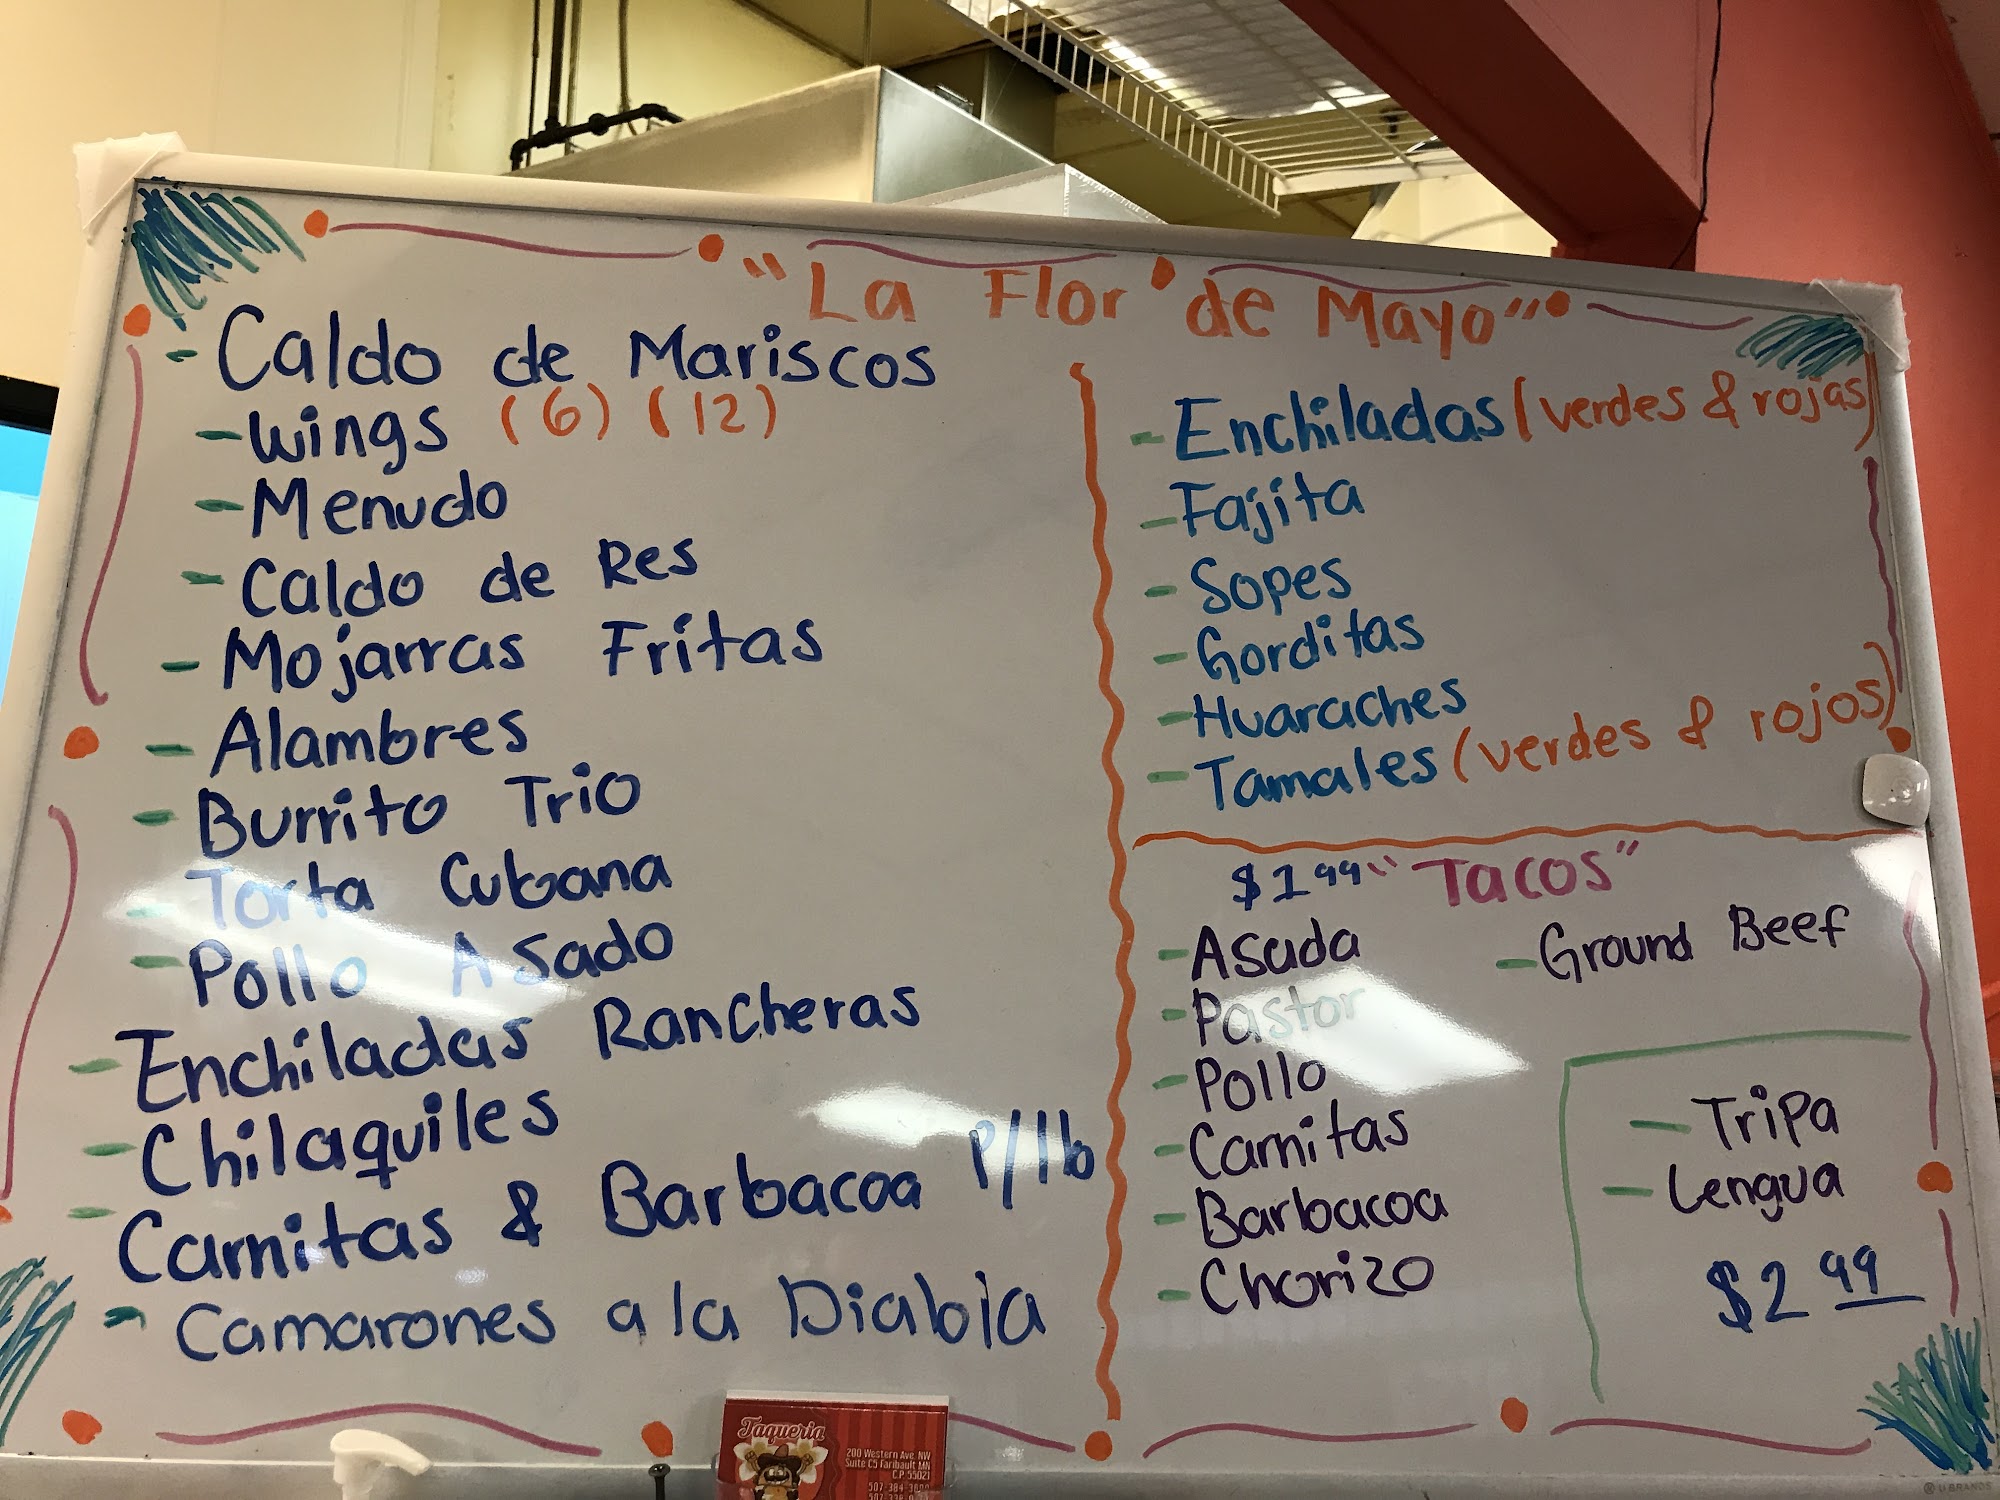 "La Flor de Mayo"
- Caldo de Mariscos
- Wings (6) (12)
- Menudo
- Caldo de Res
- Mojarras Fritas
- Alambres
- Burrito Trio
- Torta Cubana
- Pollo Asado
- Enchiladas Rancheras
- Chilaquiles
- Carnitas & Barbacoa P/lb
- Camarones a la Diabla
- Enchiladas (verdes & rojas)
- Fajita
- Sopes
- Gorditas
- Huaraches
- Tamales (verdes & rojos)
$1 99 "Tacos"
- Asada
- Pastor
- Pollo
- Carnitas
- Barbacoa
- Chorizo
- Ground Beef
- Tripa
- Lengua
$2 99
Taqueria
200 Western Ave. NW
Suite C5 Faribault MN
C.P. 55021
U BRANDS